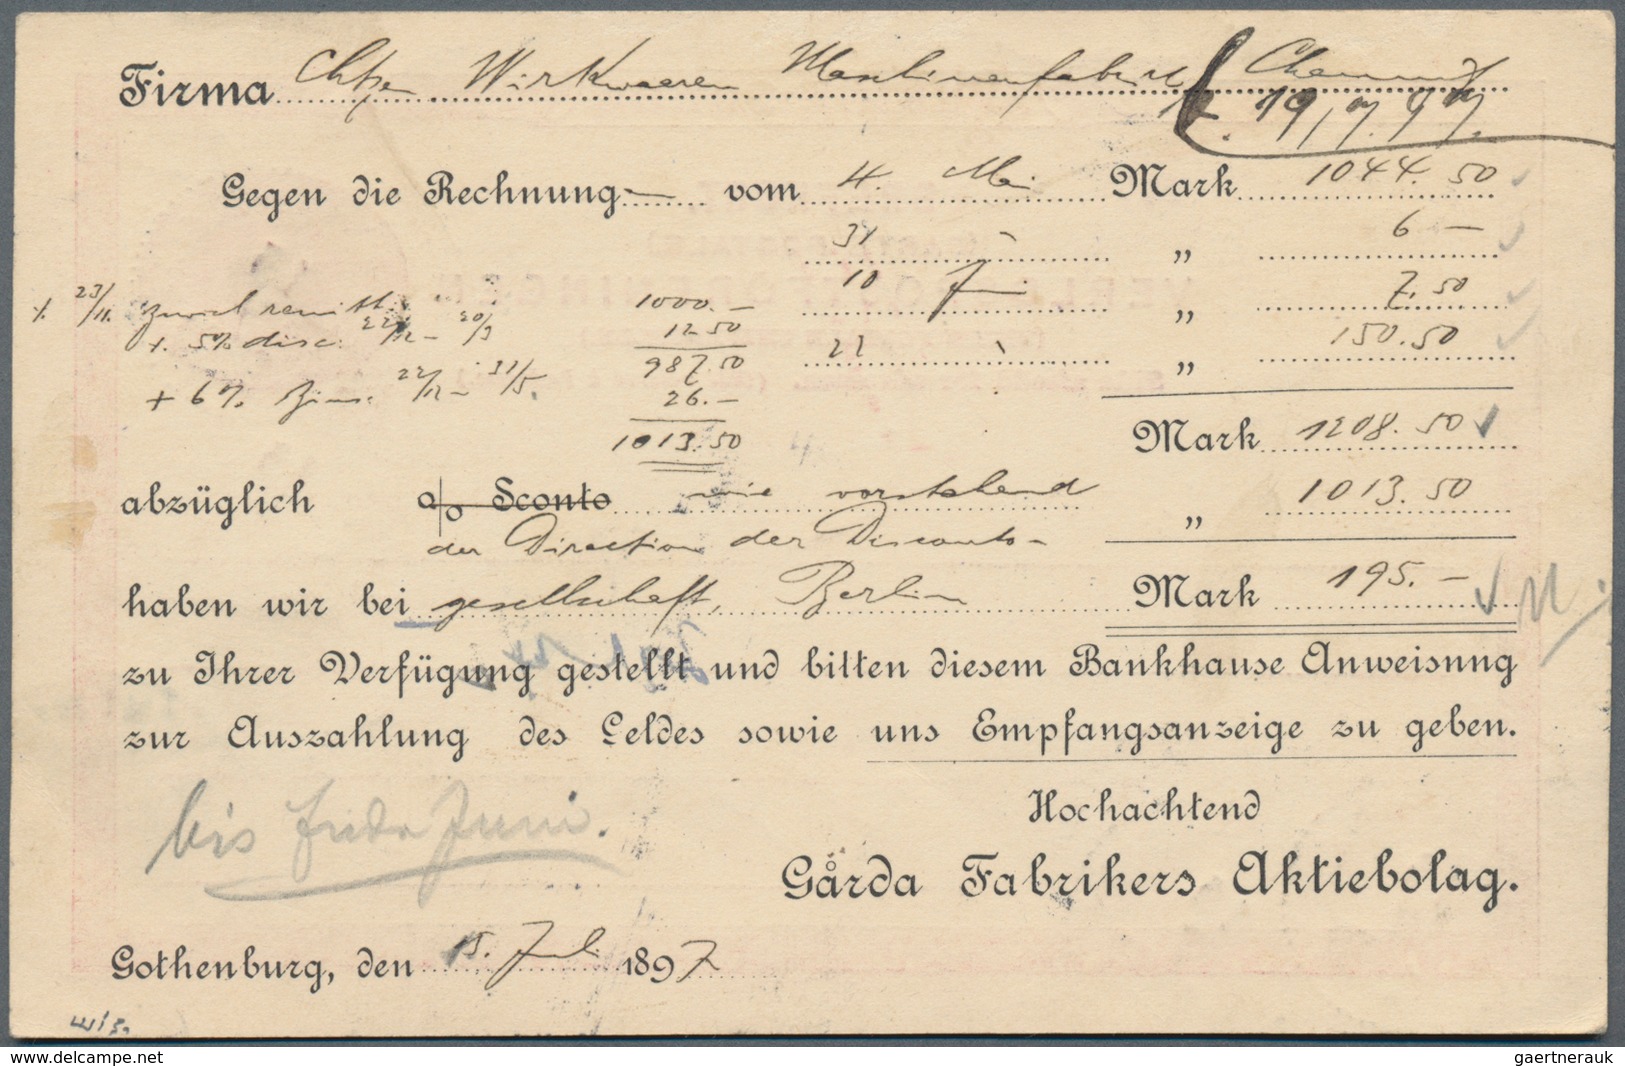 Firma Chtzer Wirkwaaren Maschinenfabrik Chemnitz
19/7.97.
Gegen die Rechnung — vom 4. Mai Mark 1044.50
31 " „ 6 —
10 Juni „ 7.50
22 " „ 150.50
% 23/11. zurück remitt. 1000.—
% 5% disc. 22/12 – 20/3 12.50
987.50
+ 6% Zins. 22/12 – 31/5. 26.—
1013.50
Mark 1208.50
abzüglich % Sconto wie vorstehend „ 1013.50
der Direction der Disconto-
haben wir bei gesellschaft, Berlin Mark 195.—
zu Ihrer Verfügung gestellt und bitten diesem Bankhause Anweisnng
zur Auszahlung des Geldes sowie uns Empfangsanzeige zu geben.
bis Ende Juni.
Hochachtend
Gårda Fabrikers Aktiebolag.
Gothenburg, den 15. Juli 1897
www.delcampe.net
gaertnerauk